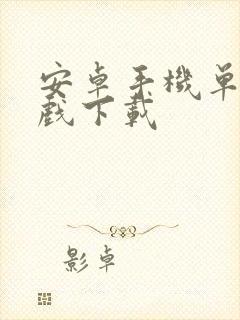 安卓手機单
戲下載
影卓